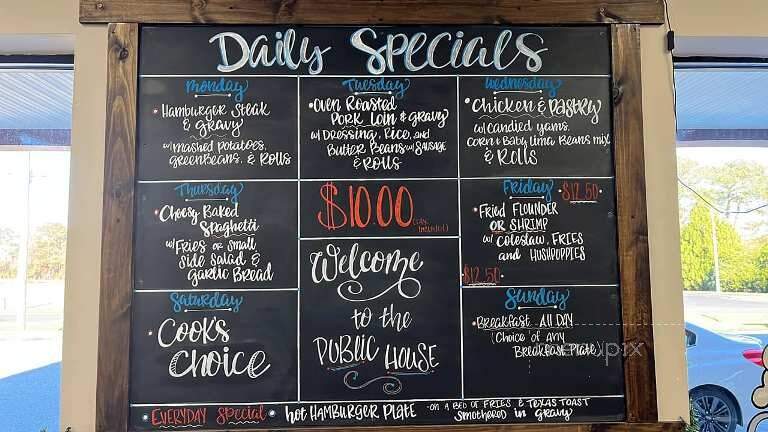 Daily Specials
Monday
• Hamburger Steak
& gravy
w/ mashed potatoes,
green Beans, & Rolls
Tuesday
• Oven Roasted
Pork Loin & gravy
w/ Dressing, Rice, and
Butter Beans w/ Sausage
& Rolls
Wednesday
• Chicken & Pastry
w/ candied yams,
Corn & Baby Lima Beans mix
& Rolls
Thursday
• Cheesy Baked
Spaghetti
w/ Fries or small
side salad &
garlic Bread
$10.00
Friday • $12.50 •
• Fried Flounder
or Shrimp
w/ coleslaw, Fries
and Hushpuppies
$12.50 •
Saturday
• Cook's
Choice
Welcome
to the
Public House
Sunday
• Breakfast All Day
Choice of any
Breakfast Plate
• Everyday Special • hot Hamburger Plate - on a bed of Fries & Texas Toast
smothered in gravy